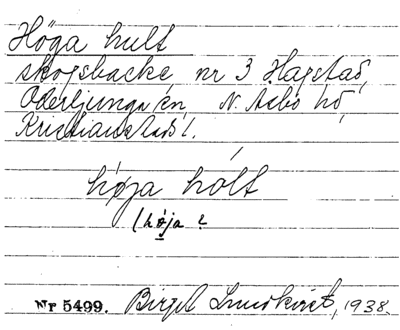 Höga hult
skogsbacke nr 3 Hagstad,
Oderljunga sn N. Åsbo hd
Kristianstads l.
høja hólt
(høja ?
Nr 5499. Birgit Lundkvist, 1938.